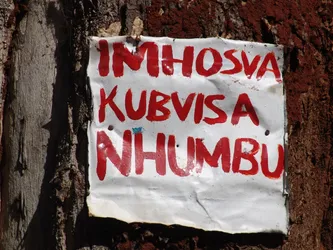 IMHOSVA
KUBVISA
NHUMBU